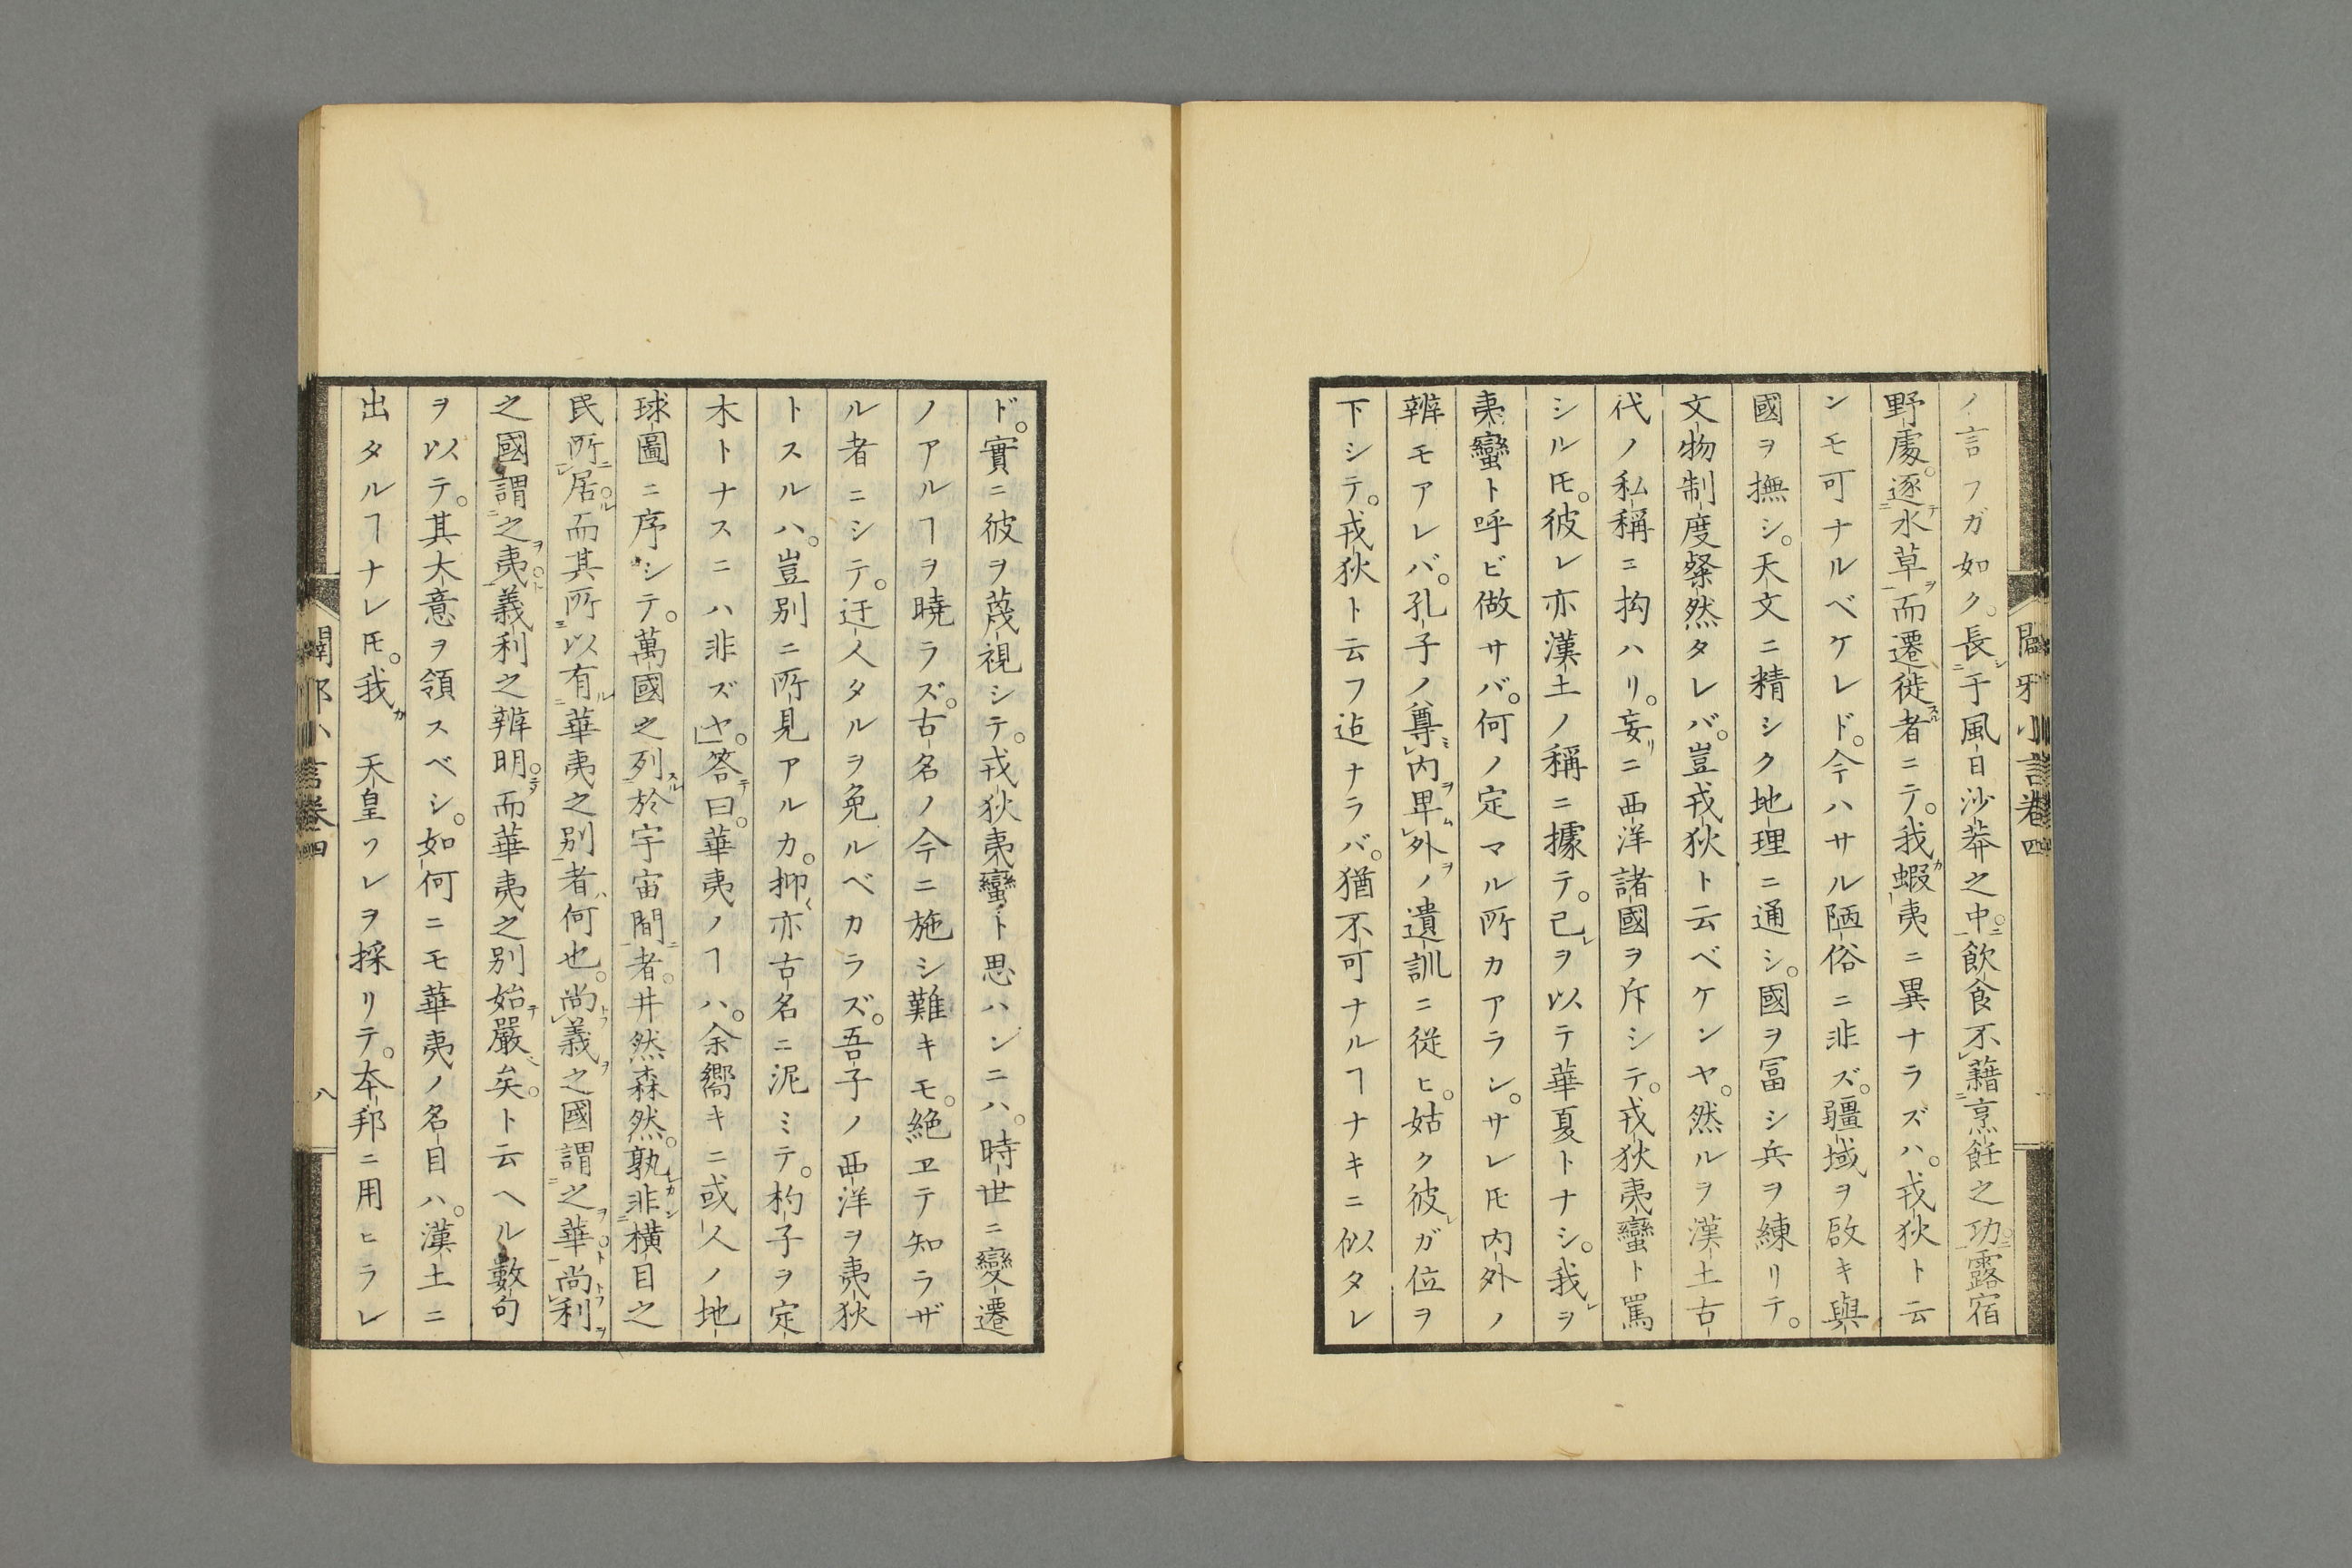 ノ言フガ如ク。長于風日沙莽之中。飲食不藉烹飪之功。露宿
野處。逐水草而遷徙者ニテ。我蝦夷ニ異ナラズハ。戎狄ト云
ンモ可ナルベケレド。今ハサル陋俗ニ非ズ。疆域ヲ啟キ與
國ヲ撫シ。天文ニ精シク地理ニ通シ。國ヲ冨シ兵ヲ練リテ。
文物制度粲然タレバ。豈戎狄ト云ベケンヤ。然ルヲ漢土古
代ノ私稱ニ拘ハリ。妄リニ西洋諸國ヲ斥シテ。戎狄夷蠻ト罵
シルㇳモ。彼レ亦漢土ノ稱ニ據テ。己レヲ以テ華夏トナシ。我レヲ
夷蠻ト呼ビ做サバ。何ノ定マル所カアラン。サレㇳモ内外ノ
辨モアレバ。孔子ノ尊内卑外ノ遺訓ニ従ヒ。姑ク彼レガ位ヲ
下シテ。戎狄ト云フ迠ナラバ。猶不可ナルヿナキニ似タレ
ド。實ニ彼ヲ蔑視シテ。戎狄夷蠻ト思ハンニハ。時世ニ變遷
ノアルヿヲ曉ラズ。古名ノ今ニ施シ難キモ。絶ヱテ知ラザ
ル者ニシテ。迂人タルヲ免ルベカラズ。吾子ノ西洋ヲ夷狄
トスルハ。豈別ニ所見アルカ。抑〱亦古名ニ泥ミテ。杓子ヲ定
木トナスニハ非ズヤ。」答テ曰。華夷ノヿハ。余嚮キニ或人ノ地
球圖ニ序シテ。萬國之列於宇宙間者。井然森然。孰非横目之
民所居。而其所以有華夷之別者何也。尚義之國謂之華。尚利
之國謂之夷。義利之辨明。而華夷之別始嚴矣。ト云ヘル數句
ヲ以テ。其大意ヲ領スベシ。如何ニモ華夷ノ名目ハ。漢土ニ
出タルヿナレㇳモ。我カ 天皇ワレヲ採リテ。本邦ニ用ヒラレ
八